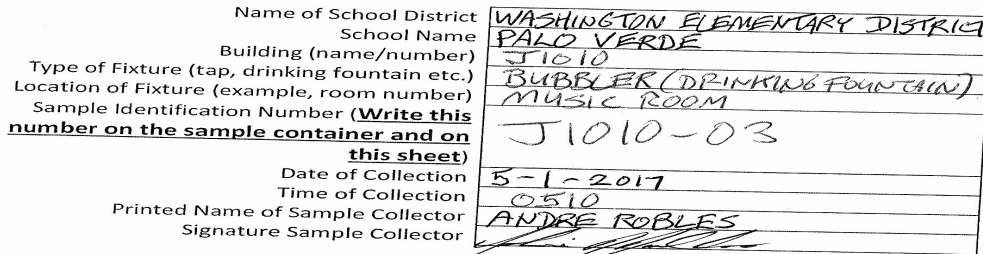 Name of School District WASHINGTON ELEMENTARY DISTRICT
School Name PALO VERDE
Building (name/number) J1010
Type of Fixture (tap, drinking fountain etc.) BUBBLER (DRINKING FOUNTAIN)
Location of Fixture (example, room number) MUSIC ROOM
Sample Identification Number (Write this
number on the sample container and on J1010-03
this sheet)
Date of Collection 5-1-2017
Time of Collection 0510
Printed Name of Sample Collector ANDRE ROBLES
Signature Sample Collector